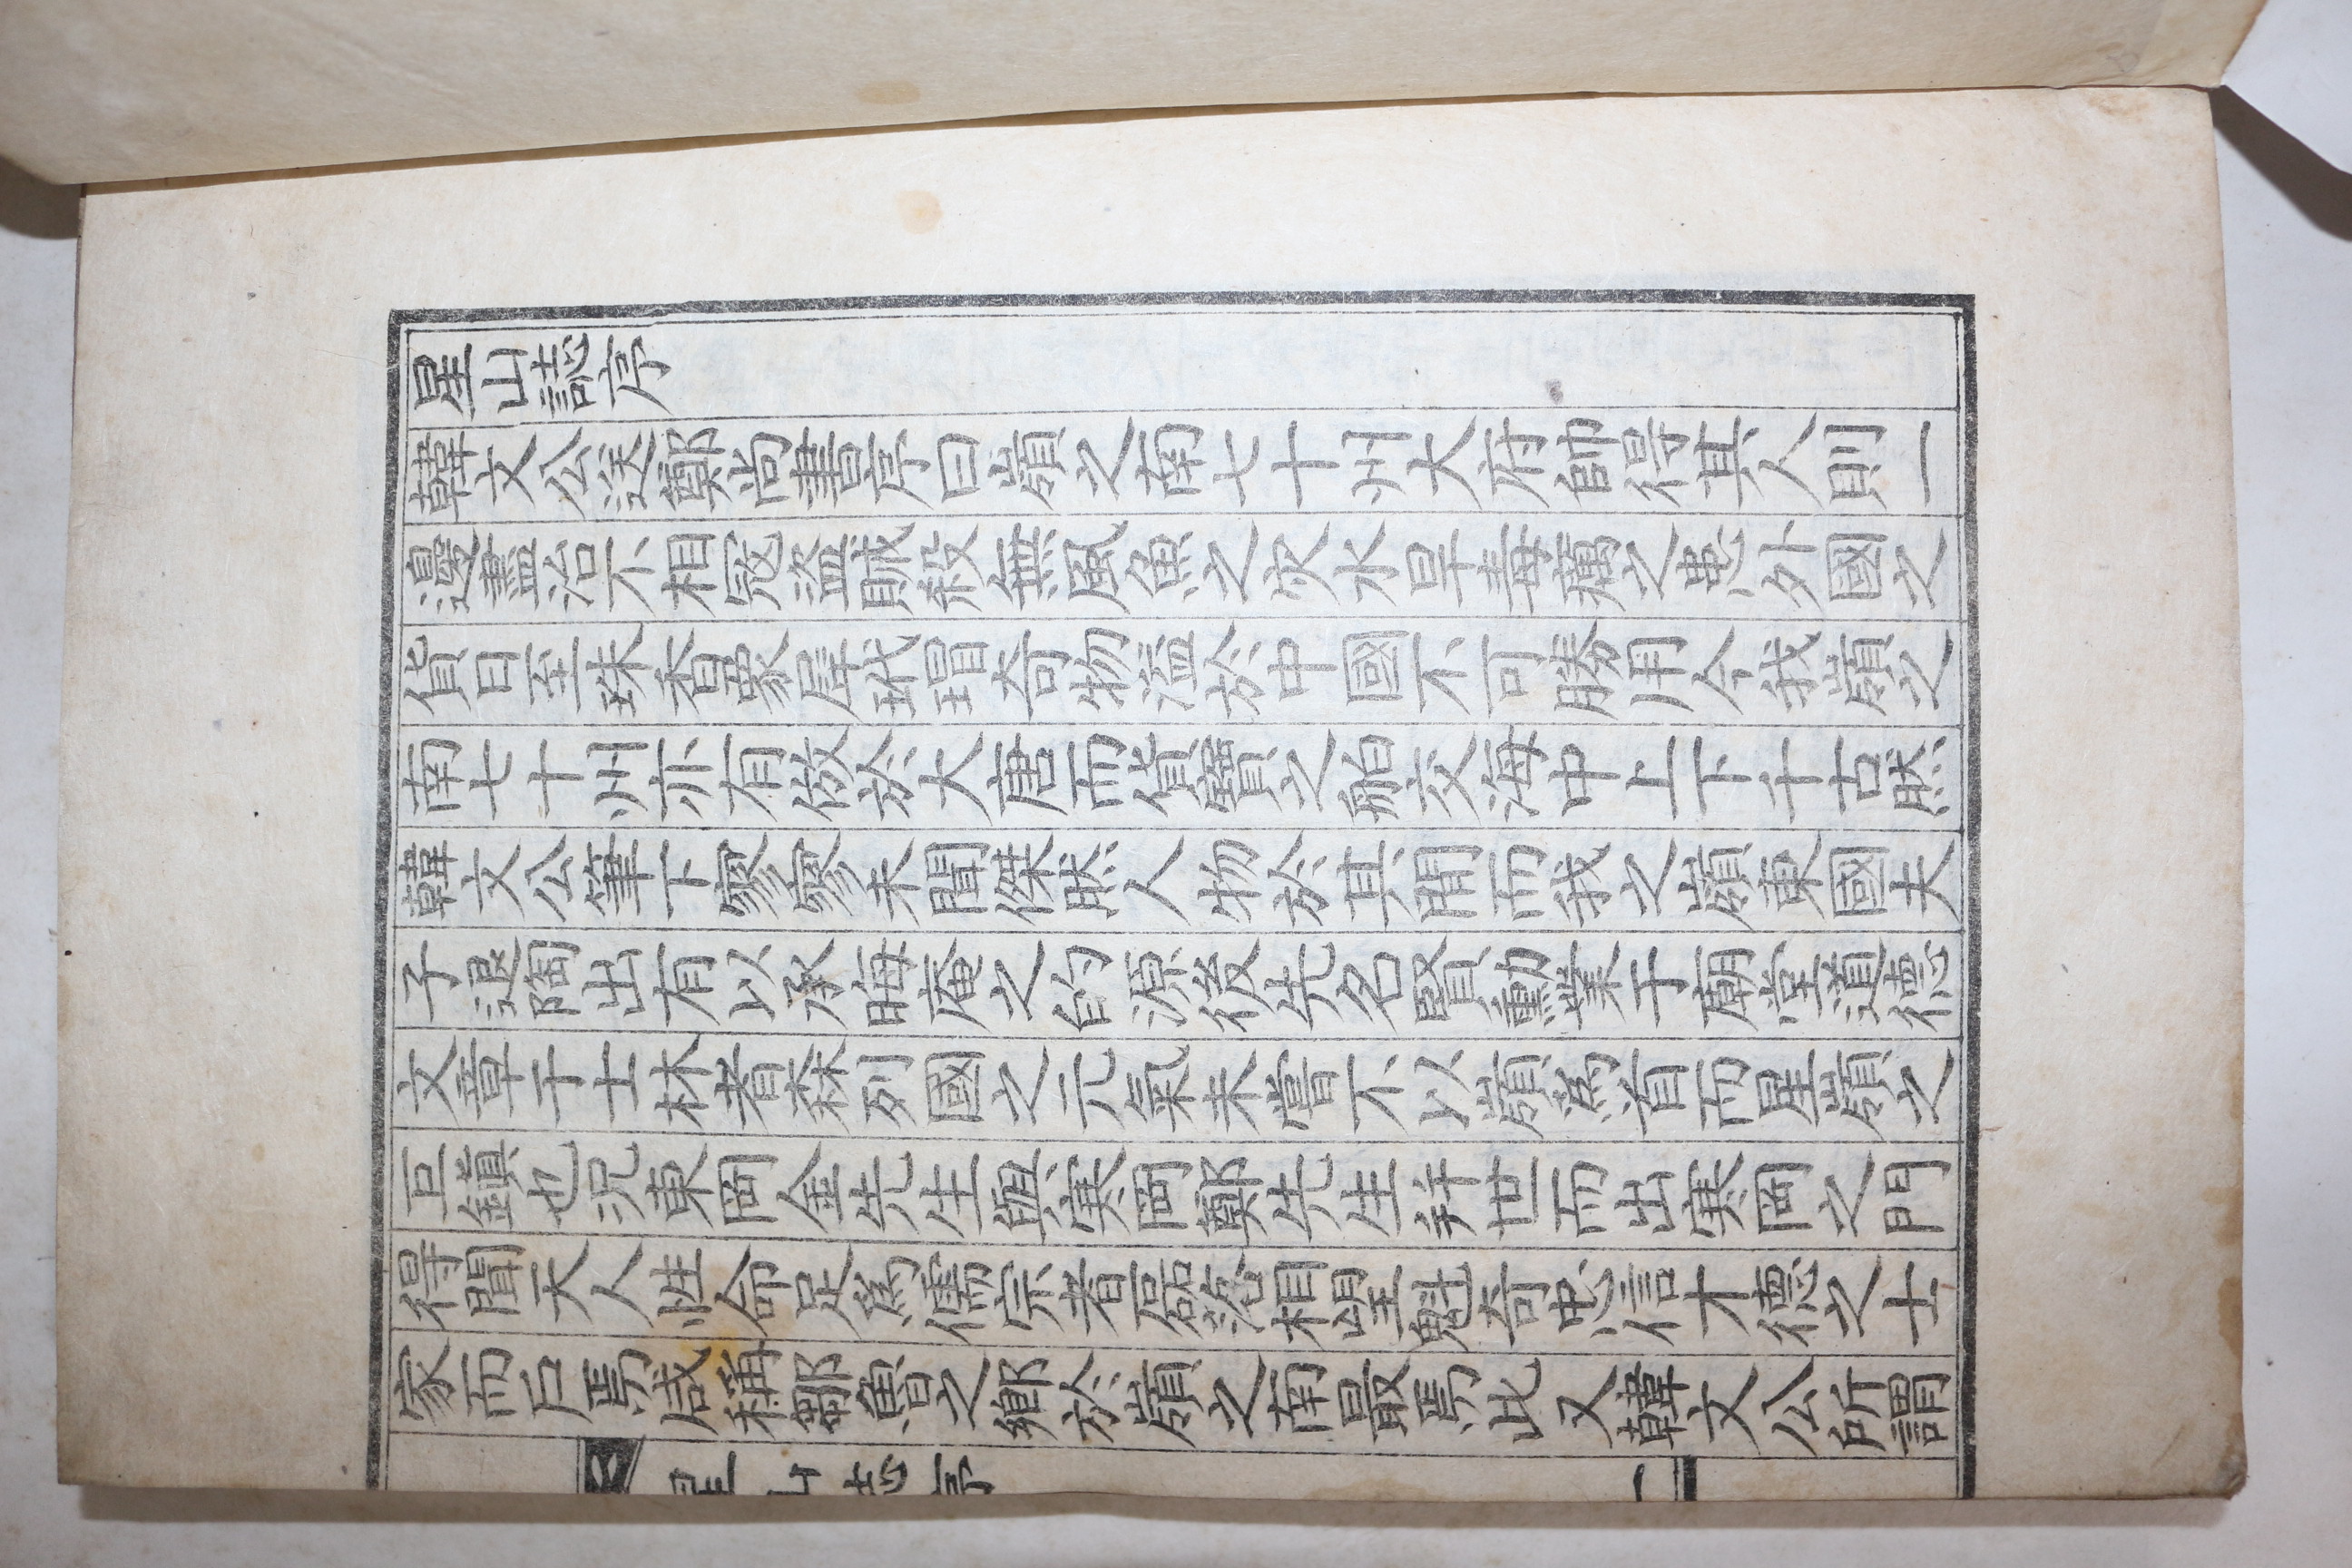 星山誌序
韓文公送鄭尙書序曰嶺之南七十州大府帥得其人則一
邊盡治不相冦盜賊殺無風魚之灾水旱毒癘之患外國之
貨日至珠香象犀玳瑁奇物溢於中國不可勝用今我嶺之
南七十州亦有倣於大唐而貨寶之舶交海中上下千古然
韓文公筆下寥寥未聞傑然人物於其間而我之嶺東國夫
子退陶出有以承晦庵之的源後先名賢勳業于廟堂道德
文章于士林者森列國之元氣未嘗不以嶺爲首而星嶺之
巨鎭也况東岡金先生與寒岡鄭先生幷世而出寒岡之門
得聞天人性命足爲儒宗者磊落相望魁奇忠信才德之士
家而戶焉咸稱鄒魯之鄕於嶺之南最焉此又韓文公所謂
星山誌序 一